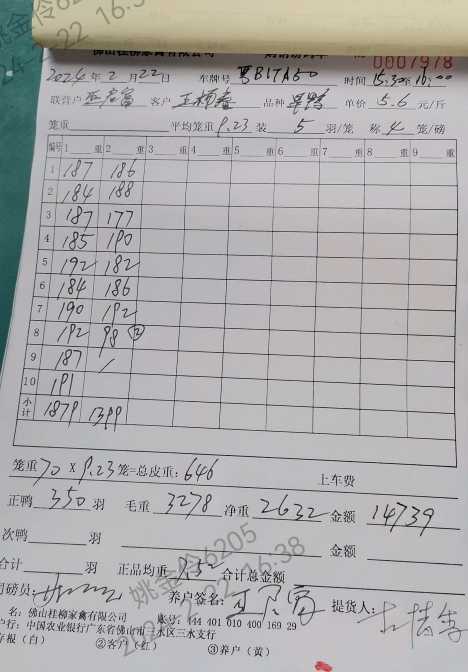 佛山桂柳家禽有限公司 0007978
2024年2月22日 车牌号 粤B17A50 时间 15.30至16:00
联营户 客户 品种 单鸭 单价 5.6 元/斤
笼重 平均笼重 9.23 装 5 羽/笼 称 4 笼/磅
编号 1 重 2 重 3 重 4 重 5 重 6 重 7 重 8 重 9 重
1 187 186
2 184 188
3 187 177
4 185 190
5 192 182
6 184 186
7 190 192
8 192 98 ②
9 187 /
10 191
小计 1879 1399
笼重 70 X 9.23 笼=总皮重: 646 上车费
正鸭 350 羽 毛重 3278 净重 2632 金额 14739
次鸭 羽 金额
合计 羽 正品均重 7.52 合计总金额
司磅员: 养户签名: 提货人:
名: 佛山桂柳家禽有限公司 账号: 444 401 010 400 169 29
户行: 中国农业银行广东省佛山市三水区三水支行
存根（白） ②客户（红） ③养户（黄）
姚金伶6205
2024-2-22 16:38